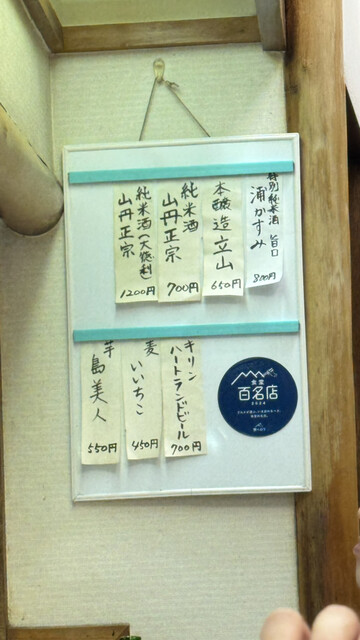 特別純米酒 旨口
浦かすみ
800円
本醸造 立山
650円
純米酒
山丹正宗
700円
純米酒(大徳利)
山丹正宗
1200円
キリン
ハートランドビール
700円
麦 いいちこ
450円
芋 島美人
550円
食堂
百名店